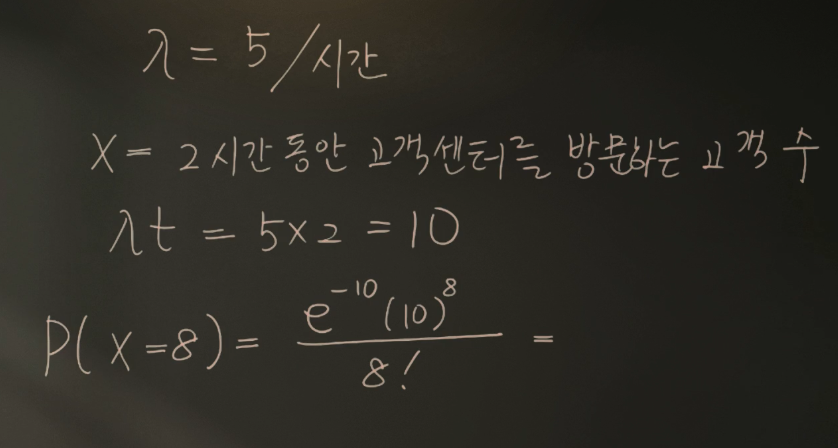 λ = 5/시간
X = 2시간 동안 고객센터를 방문하는 고객 수
λt = 5×2 = 10
P(X=8) = e^{-10}(10)^8 / 8! =